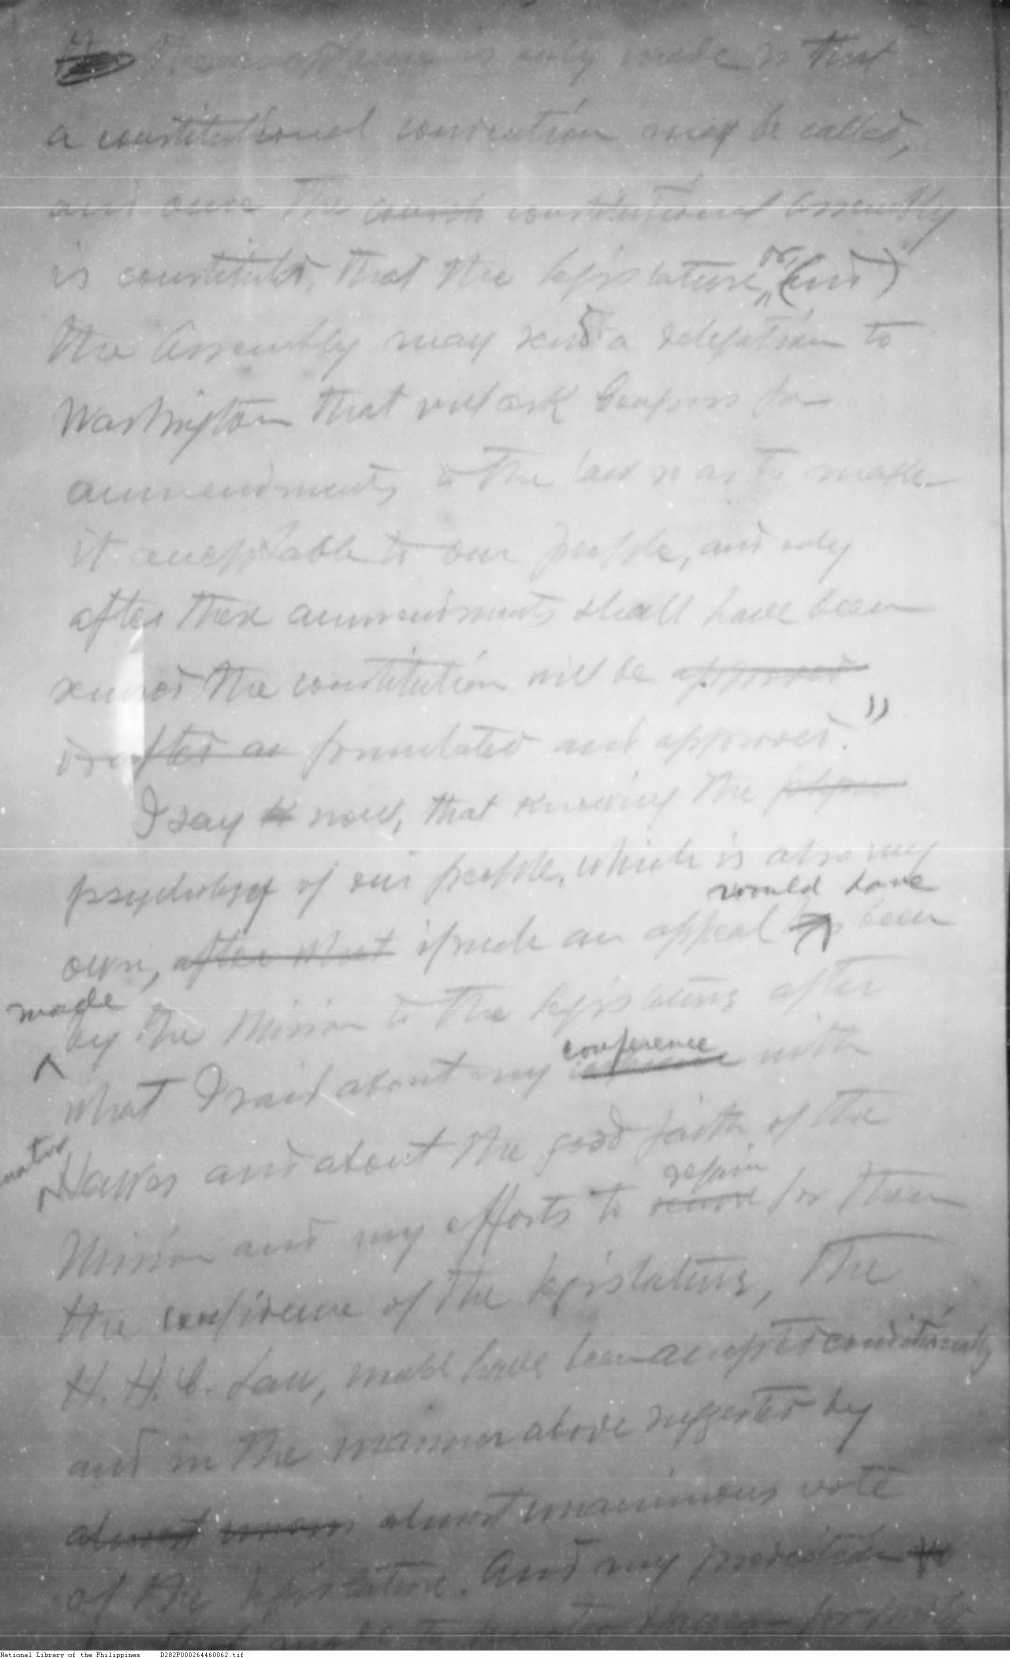 is only made so that
a constitutional convention may be called,
and once the constitutional assembly
is constituted, that the legislature, or, (and)
the Assembly may send a delegation to
Washington that will ask Congress for
ammendments to the law so as to make
it acceptable to our people, and only
after these ammendments shall have been
the constitution will be approved
drafted an formulated and approved."
I say now, that knowing the
psychology of our people, which is also my
would have
own, after what if such an appeal been
made
by the Mission to the legislature after
conference
what I said about my with
Hawes and about the good faith of the
regain
Mission and my efforts to for them
the confidence of the legislature, the
H. H. C. Law, would have been accepted conditionally
and in the manner above suggested by
almost unani almost unanimous vote
of the legislature. And my prediction